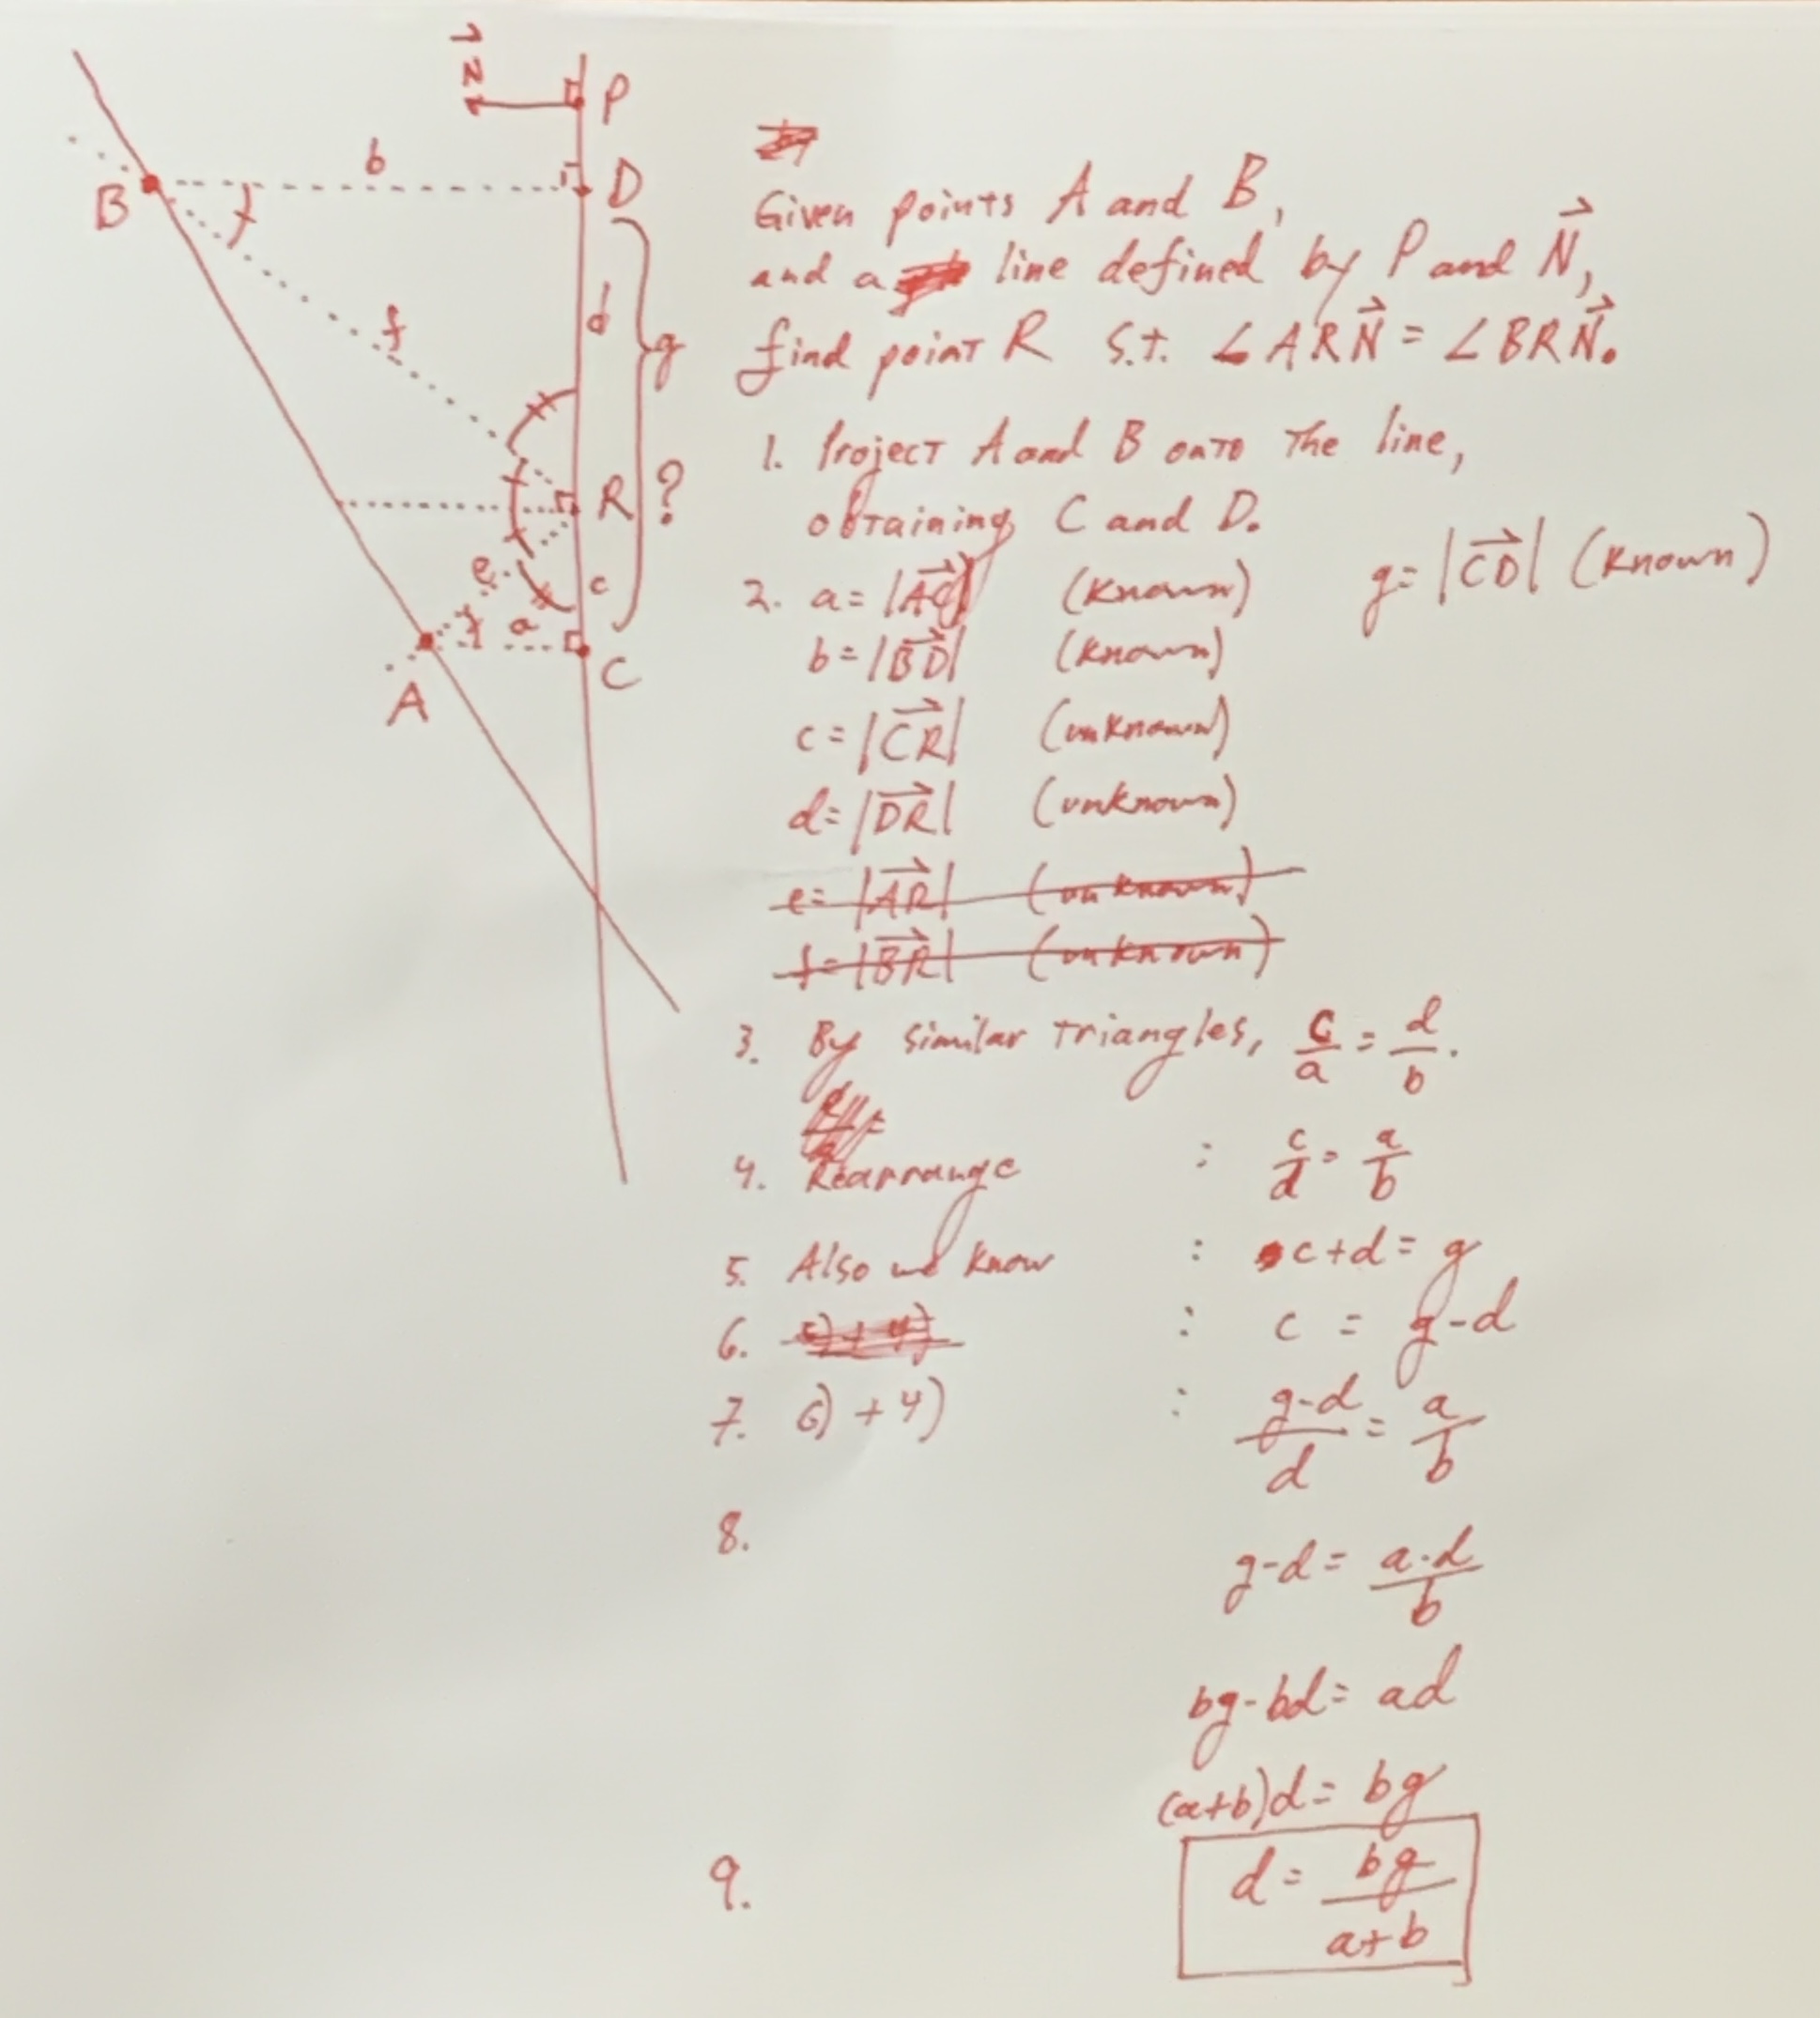 N⃗
P
b
B
D
d
f
g
R
?
e
c
a
C
A
Given points A and B,
and a line defined by P and N⃗,
find point R s.t. ∠ARN⃗ = ∠BRN⃗.
1. Project A and B onto the line,
obtaining C and D.
g = |CD⃗| (known)
2. a = |AC⃗| (known)
b = |BD⃗| (known)
c = |CR⃗| (unknown)
d = |DR⃗| (unknown)
e = |AR⃗| (unknown)
f = |BR⃗| (unknown)
3. By similar triangles, c/a = d/b.
4. Rearrange : c/d = a/b
5. Also we know : c+d = g
6. 5) + 4) : c = g-d
7. 6) + 4) : g-d/d = a/b
8.
g-d = a·d/b
bg-bd = ad
(a+b)d = bg
9.
d = bg/a+b